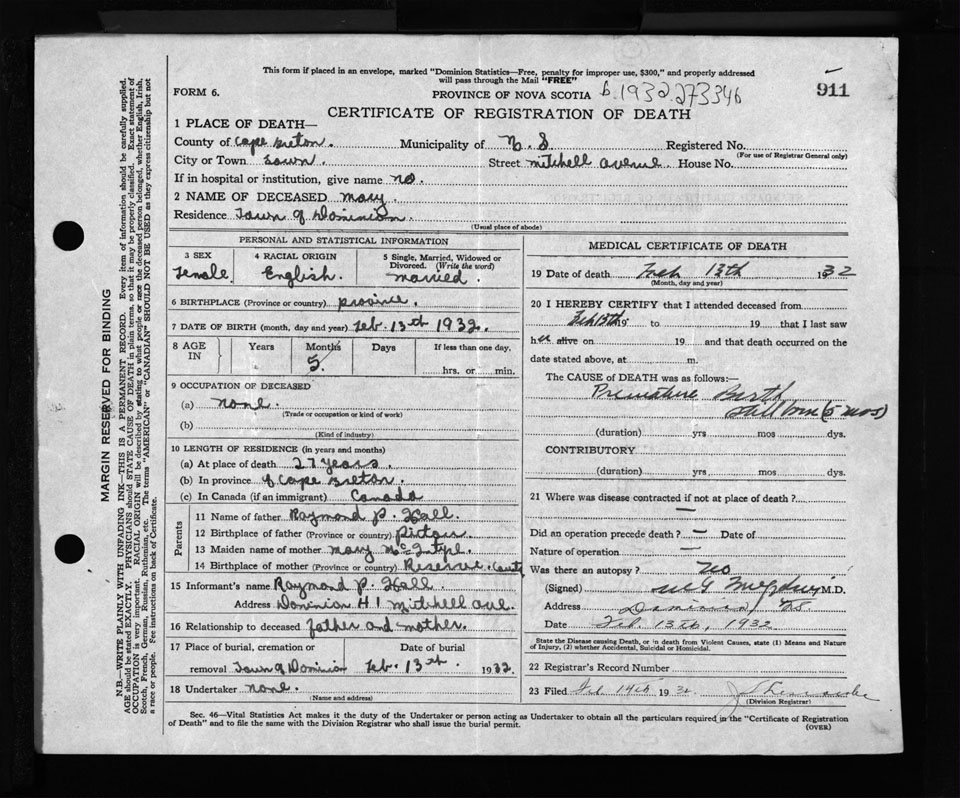 This form if placed in an envelope, marked "Dominion Statistics—Free, penalty for improper use, $300," and properly addressed
will pass through the Mail "FREE"
FORM 6.
PROVINCE OF NOVA SCOTIA b.1932.273346
911
CERTIFICATE OF REGISTRATION OF DEATH
1 PLACE OF DEATH—
County of Cape Breton. Municipality of N. S Registered No.
(For use of Registrar General only)
City or Town Town. Street Mitchell Avenue House No.
If in hospital or institution, give name no.
2 NAME OF DECEASED Mary.
Residence Town of Dominion.
(Usual place of abode)
PERSONAL AND STATISTICAL INFORMATION
3 SEX
Female
4 RACIAL ORIGIN
English.
5 Single, Married, Widowed or
Divorced. (Write the word)
Married.
6 BIRTHPLACE (Province or country) province.
7 DATE OF BIRTH (month, day and year) Feb. 13th 1932.
8 AGE IN
Years Months Days If less than one day,
5. hrs. or min.
9 OCCUPATION OF DECEASED
(a) none.
(Trade or occupation or kind of work)
(b)
(Kind of industry)
10 LENGTH OF RESIDENCE (in years and months)
(a) At place of death 27 years.
(b) In province of Cape Breton.
(c) In Canada (if an immigrant) Canada
Parents
11 Name of father Raymond P. Hall.
12 Birthplace of father (Province or country) Pictou
13 Maiden name of mother Mary McIntyre.
14 Birthplace of mother (Province or country) Reserve.
15 Informant's name Raymond P. Hall.
Address Dominion H 1 Mitchell Ave.
16 Relationship to deceased father and mother.
17 Place of burial, cremation or Date of burial
removal Town of Dominion Feb. 13th 1932
18 Undertaker none.
(Name and address)
MEDICAL CERTIFICATE OF DEATH
19 Date of death Feb 13th 1932
(Month, day and year)
20 I HEREBY CERTIFY that I attended deceased from
Feb 13th 19 to 19 that I last saw
her alive on 19 and that death occurred on the
date stated above, at m.
The CAUSE of DEATH was as follows:—
Premature Birth
Stillborn (5 mos)
(duration) yrs mos dys.
CONTRIBUTORY
(duration) yrs mos dys.
21 Where was disease contracted if not at place of death?
—
Did an operation precede death? — Date of
Nature of operation —
Was there an autopsy? No
(Signed) M.D.
Address Dominion, NS
Date Feb. 13th, 1932
State the Disease causing Death, or in death from Violent Causes, state (1) Means and Nature
of Injury, (2) whether Accidental, Suicidal or Homicidal.
22 Registrar's Record Number
23 Filed Feb 14th 1932
(Division Registrar)
Sec. 46—Vital Statistics Act makes it the duty of the Undertaker or person acting as Undertaker to obtain all the particulars required in the "Certificate of Registration
of Death" and to file the same with the Division Registrar who shall issue the burial permit.
(OVER)
MARGIN RESERVED FOR BINDING
N.B.—WRITE PLAINLY WITH UNFADING INK—THIS IS A PERMANENT RECORD. Every item of information should be carefully supplied.
AGE should be stated EXACTLY. PHYSICIANS should STATE CAUSE OF DEATH in plain terms, so that it may be properly classified. Exact statement of
OCCUPATION is very important. RACIAL ORIGIN will be described by stating to what people or race the deceased person belonged, whether English, Irish,
Scotch, French, German, Russian, Ruthenian, etc. The terms "AMERICAN" or "CANADIAN" SHOULD NOT BE USED as they express citizenship but not
a race or people. See instructions on back of Certificate.